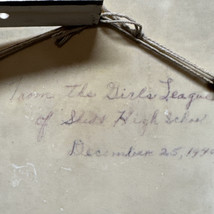 From the Girls League
of Skull High School
December 25, 194